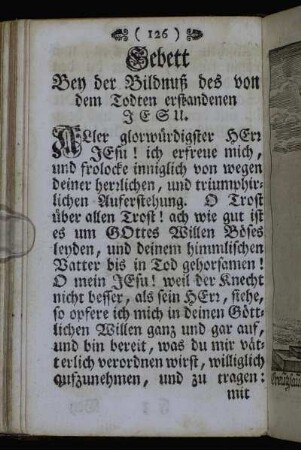 ( 126 )
Gebett
Bey der Bildnuß des von
dem Todten erstandenen
JESU.
ALler glorwürdigster HErr
JEsu! ich erfreue mich,
und frolocke inniglich von wegen
deiner herrlichen, und triumphir-
lichen Auferstehung. O Trost
über allen Trost! ach wie gut ist
es um GOttes Willen Böses
leyden, und deinem himmlischen
Vatter bis in Tod gehorsamen!
O mein JEsu! weil der Knecht
nicht besser, als sein HErr, siehe,
so opfere ich mich in deinen Gött-
lichen Willen ganz und gar auf,
und bin bereit, was du mir vät-
terlich verordnen wirst, williglich
aufzunehmen, und zu tragen:
mit